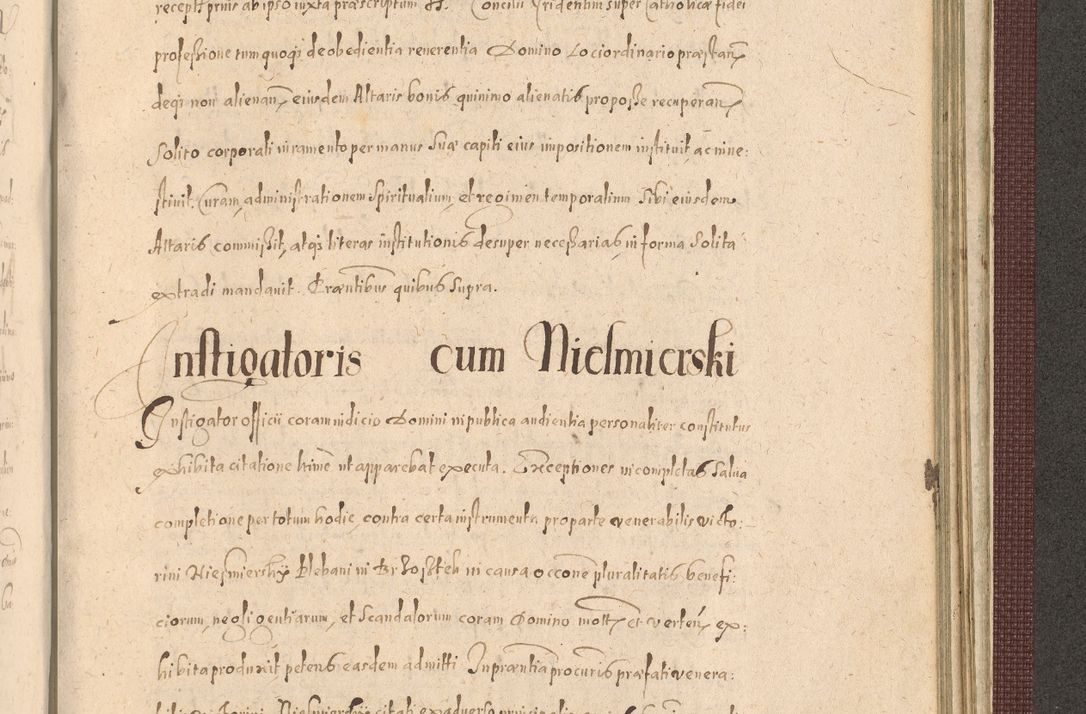 recept. prius ab ipso iuxta præscriptum St. Concilii Tridentini super catholicæ fidei
professione tum quoqȝ de obedientia reverentia Domino Loci ordinario præstan
deqȝ non alienan eiusdem Altaris bonis quinimo alienatis proposse recuperan
Solito corporali iuramento per manus suæ capiti eius impositionem instituit ac inve:
stivit, Curam, administrationem Spiritualium, et regimen temporalium Sibi eiusdem
Altaris commissit, atqȝ literas institutionis desuper necessarias, in forma Solita
extradi mandavit. Præntibus quibus Supra.
Instigatoris cum Niesmierski
Instigator officii coram iudicio Domini in publica audientia personaliter constitutus
exhibita citatione hinc ut apparebat executa. Exceptiones incompletas Salva
completione per totum hodie, contra certa instrumenta pro parte venerabilis Victo:
rini Niesmiersky Plebani in in causa occone pluralitatis benefi:
ciorum, negligentiarum, et Scandalorum coram Domino mott et verten, ex:
hibita produxit petens easdem admitti. In præntia procuris præfati venera:
bilis Victorini Niesmierskii citati ex adverso